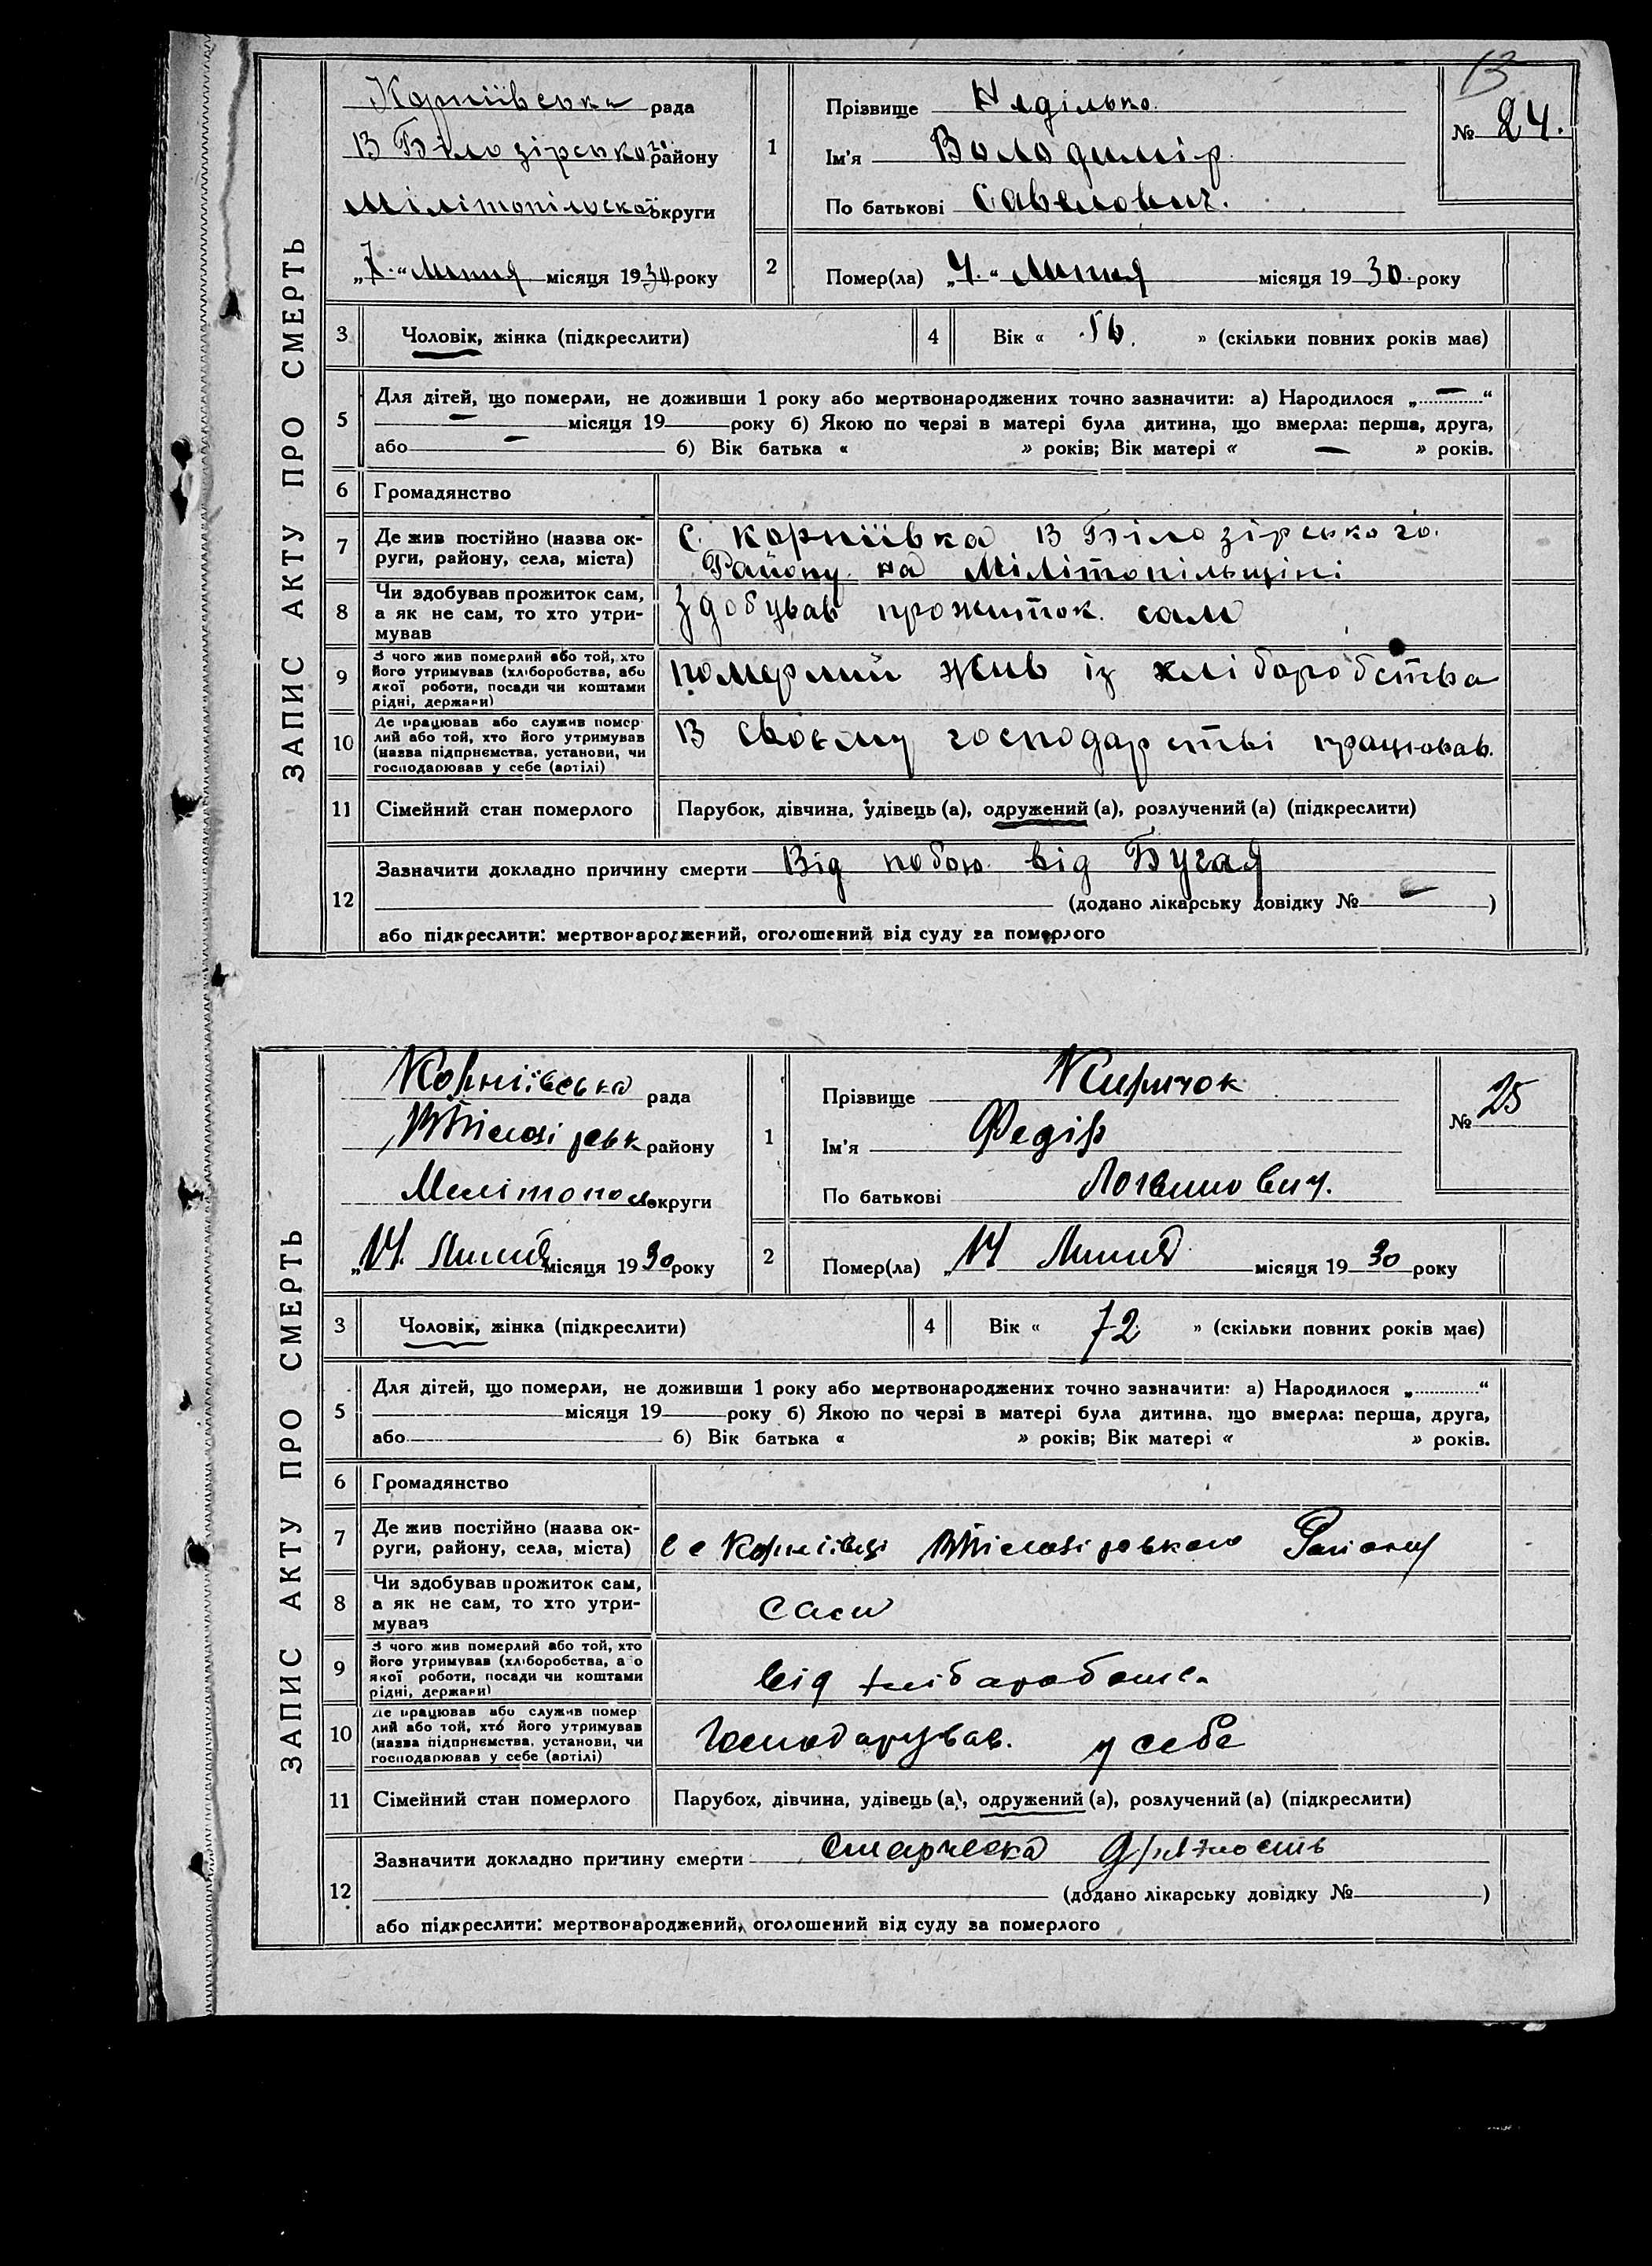 13
ЗАПИС АКТУ ПРО СМЕРТЬ
Корніївська рада
В Білозірського району
Мілітопільскої округи
„7.“ Липня місяця 1930 року
1
Прізвище Няділько.
Ім'я Володимір.
По батькові Савелович.
№ 24.
2
Помер(ла) „4.“ Липня місяця 1930. року
3 Чоловік, жінка (підкреслити)
4 Вік « 56. » (скільки повних років має)
5 Для дітей, що померли, не доживши 1 року або мертвонароджених точно зазначити: а) Народилося „ — “
— місяця 19 року б) Якою по черзі в матері була дитина, що вмерла: перша, друга,
або — б) Вік батька « » років; Вік матері « — » років.
6 Громадянство
7 Де жив постійно (назва ок-
руги, району, села, міста)
С. Корніївка В Білозірського.
Району на Мілітопільщині
8 Чи здобував прожиток сам,
а як не сам, то хто утри-
мував
Здобував прожиток. сам
9 З чого жив померлий або той, хто
його утримував (хліборобства, або
якої роботи, посади чи коштами
рідні, держави)
померлий жив із хліборобства
10 Де працював або служив помер-
лий або той, хто його утримував
(назва підприємства, установи, чи
господарював у себе (артілі)
В своєму господарстві працював.
11 Сімейний стан померлого
Парубок, дівчина, удівець (а), одружений (а), розлучений (а) (підкреслити)
12 Зазначити докладно причину смерти Від побою від Бугая
(додано лікарську довідку № — )
або підкреслити: мертвонароджений, оголошений від суду за померлого
ЗАПИС АКТУ ПРО СМЕРТЬ
Корніївська рада
району
Мелітопол округи
„14. Липня місяця 1930 року
1
Прізвище Киричок
Ім'я Федір
По батькові Логвинович.
№ 25
2
Помер(ла) „14 Липня місяця 1930 року
3 Чоловік, жінка (підкреслити)
4 Вік « 72 » (скільки повних років має)
5 Для дітей, що померли, не доживши 1 року або мертвонароджених точно зазначити: а) Народилося „ “
місяця 19 року б) Якою по черзі в матері була дитина, що вмерла: перша, друга,
або б) Вік батька « » років; Вік матері « » років.
6 Громадянство
7 Де жив постійно (назва ок-
руги, району, села, міста)
Корніївці Району
8 Чи здобував прожиток сам,
а як не сам, то хто утри-
мував
Сам
9 З чого жив померлий або той, хто
його утримував (хліборобства, або
якої роботи, посади чи коштами
рідні, держави)
від
10 Де працював або служив помер-
лий або той, хто його утримував
(назва підприємства, установи, чи
господарював у себе (артілі)
Господарував. у себе
11 Сімейний стан померлого
Парубок, дівчина, удівець (а), одружений (а), розлучений (а) (підкреслити)
12 Зазначити докладно причину смерти Старческа дряхлость
(додано лікарську довідку № )
або підкреслити: мертвонароджений, оголошений від суду за померлого